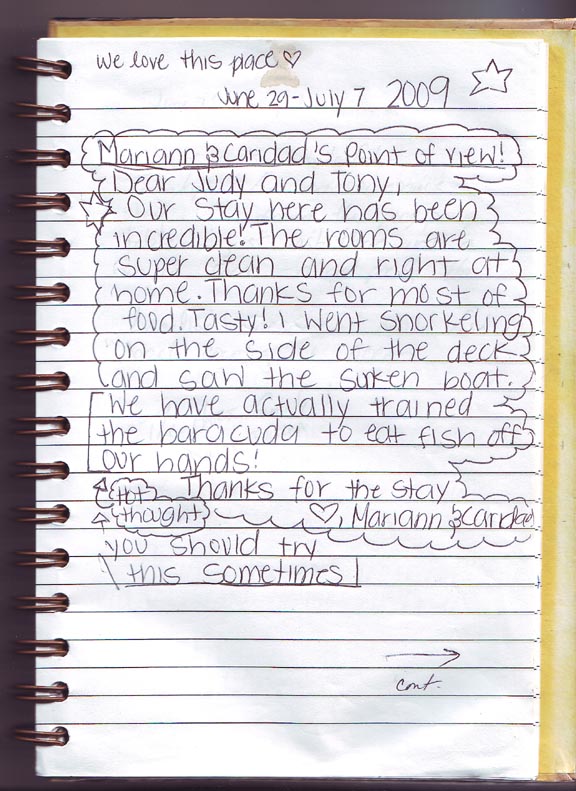 we love this place ♡
June 29-July 7 2009
Mariann & Caridad's Point of view!
Dear Judy and Tony,
Our stay here has been
incredible! The rooms are
super clean and right at
home. Thanks for most of
food. Tasty! I went snorkeling
on the side of the deck
and saw the sunken boat.
We have actually trained
the baracuda to eat fish off
our hands!
Thanks for the stay
♡, Mariann & Caridad
thought
you should try
this sometimes!
cont.